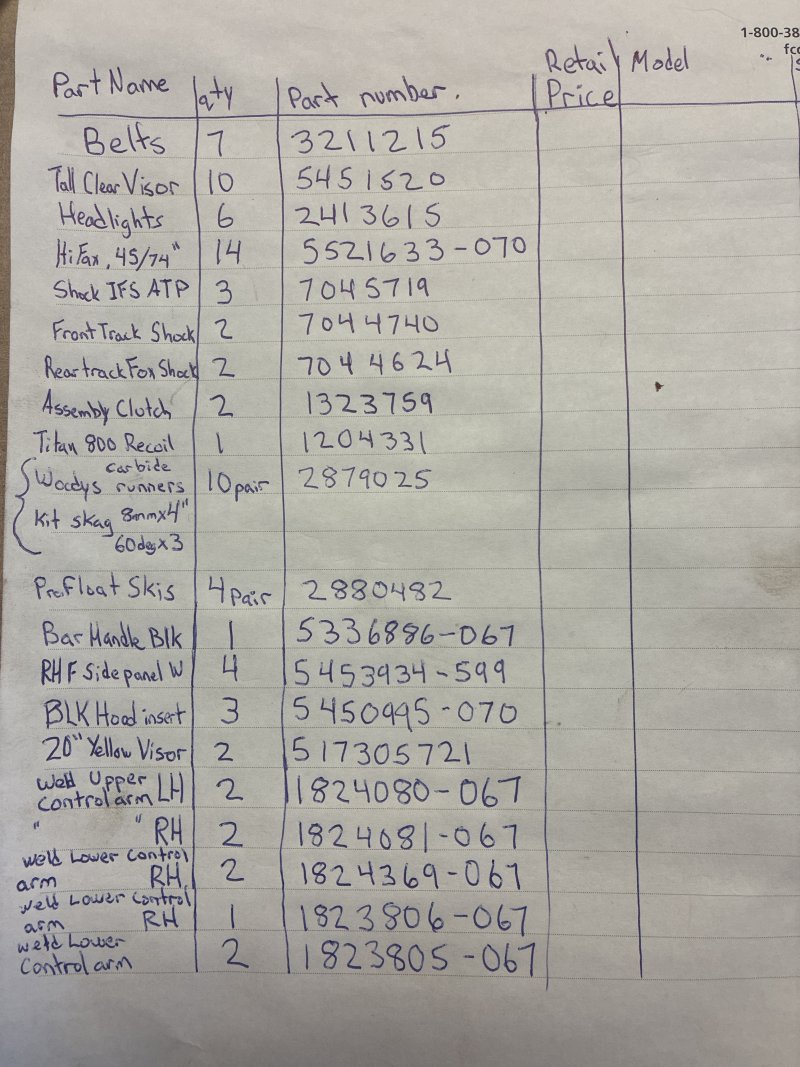 1-800-38
fcc
S
Part Name qty Part number. Retail Price Model
Belts 7 3211215
Tall Clear Visor 10 5451520
Headlights 6 2413615
HiFax, 45/74" 14 5521633-070
Shock IFS ATP 3 7045719
Front Track Shock 2 7044740
Rear track Fox Shock 2 7044624
Assembly Clutch 2 1323759
Titan 800 Recoil 1 1204331
carbide
Woodys runners 10 pair 2879025
Kit skag 8mmx4"
60degx3
Pro Float Skis 4 Pair 2880482
Bar Handle Blk 1 5336886-067
RH F Side panel W 4 5453934-599
BLK Hood insert 3 5450995-070
20" Yellow Visor 2 517305721
Weld Upper
Control arm LH 2 1824080-067
" " RH 2 1824081-067
weld Lower Control
arm RH 2 1824369-067
weld Lower Control
arm RH 1 1823806-067
weld Lower
Control arm 2 1823805-067